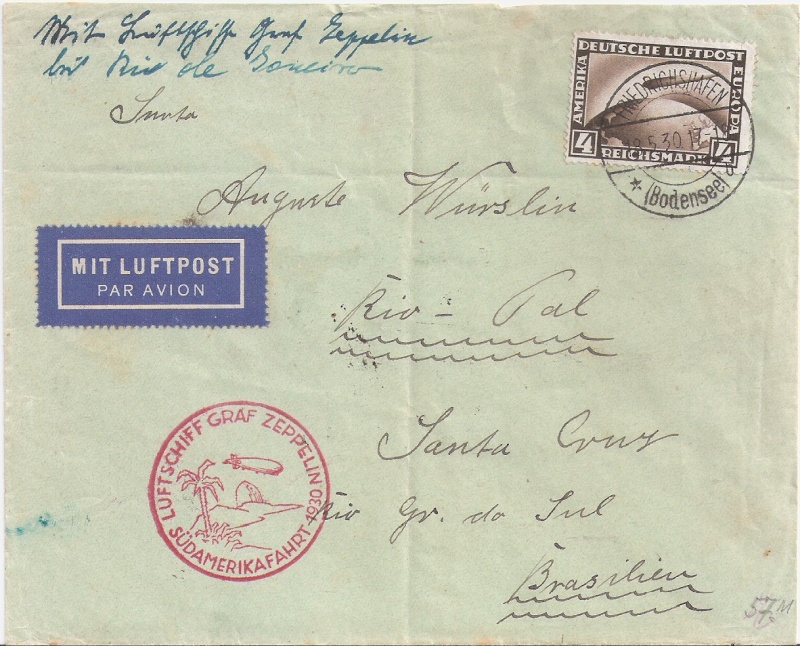 Mit Luftschiff Graf Zeppelin
bis Rio de Janeiro
DEUTSCHE LUFTPOST
AMERIKA
EUROPA
4
4
REICHSMARK
FRIEDRICHSHAFEN
5.30.17-1
(Bodensee)
Auguste Würslin
MIT LUFTPOST
PAR AVION
Rio – Pal
Santa Cruz
Rio Gr. do Sul
Brasilien
LUFTSCHIFF GRAF ZEPPELIN
SÜDAMERIKAFAHRT 1930
57.